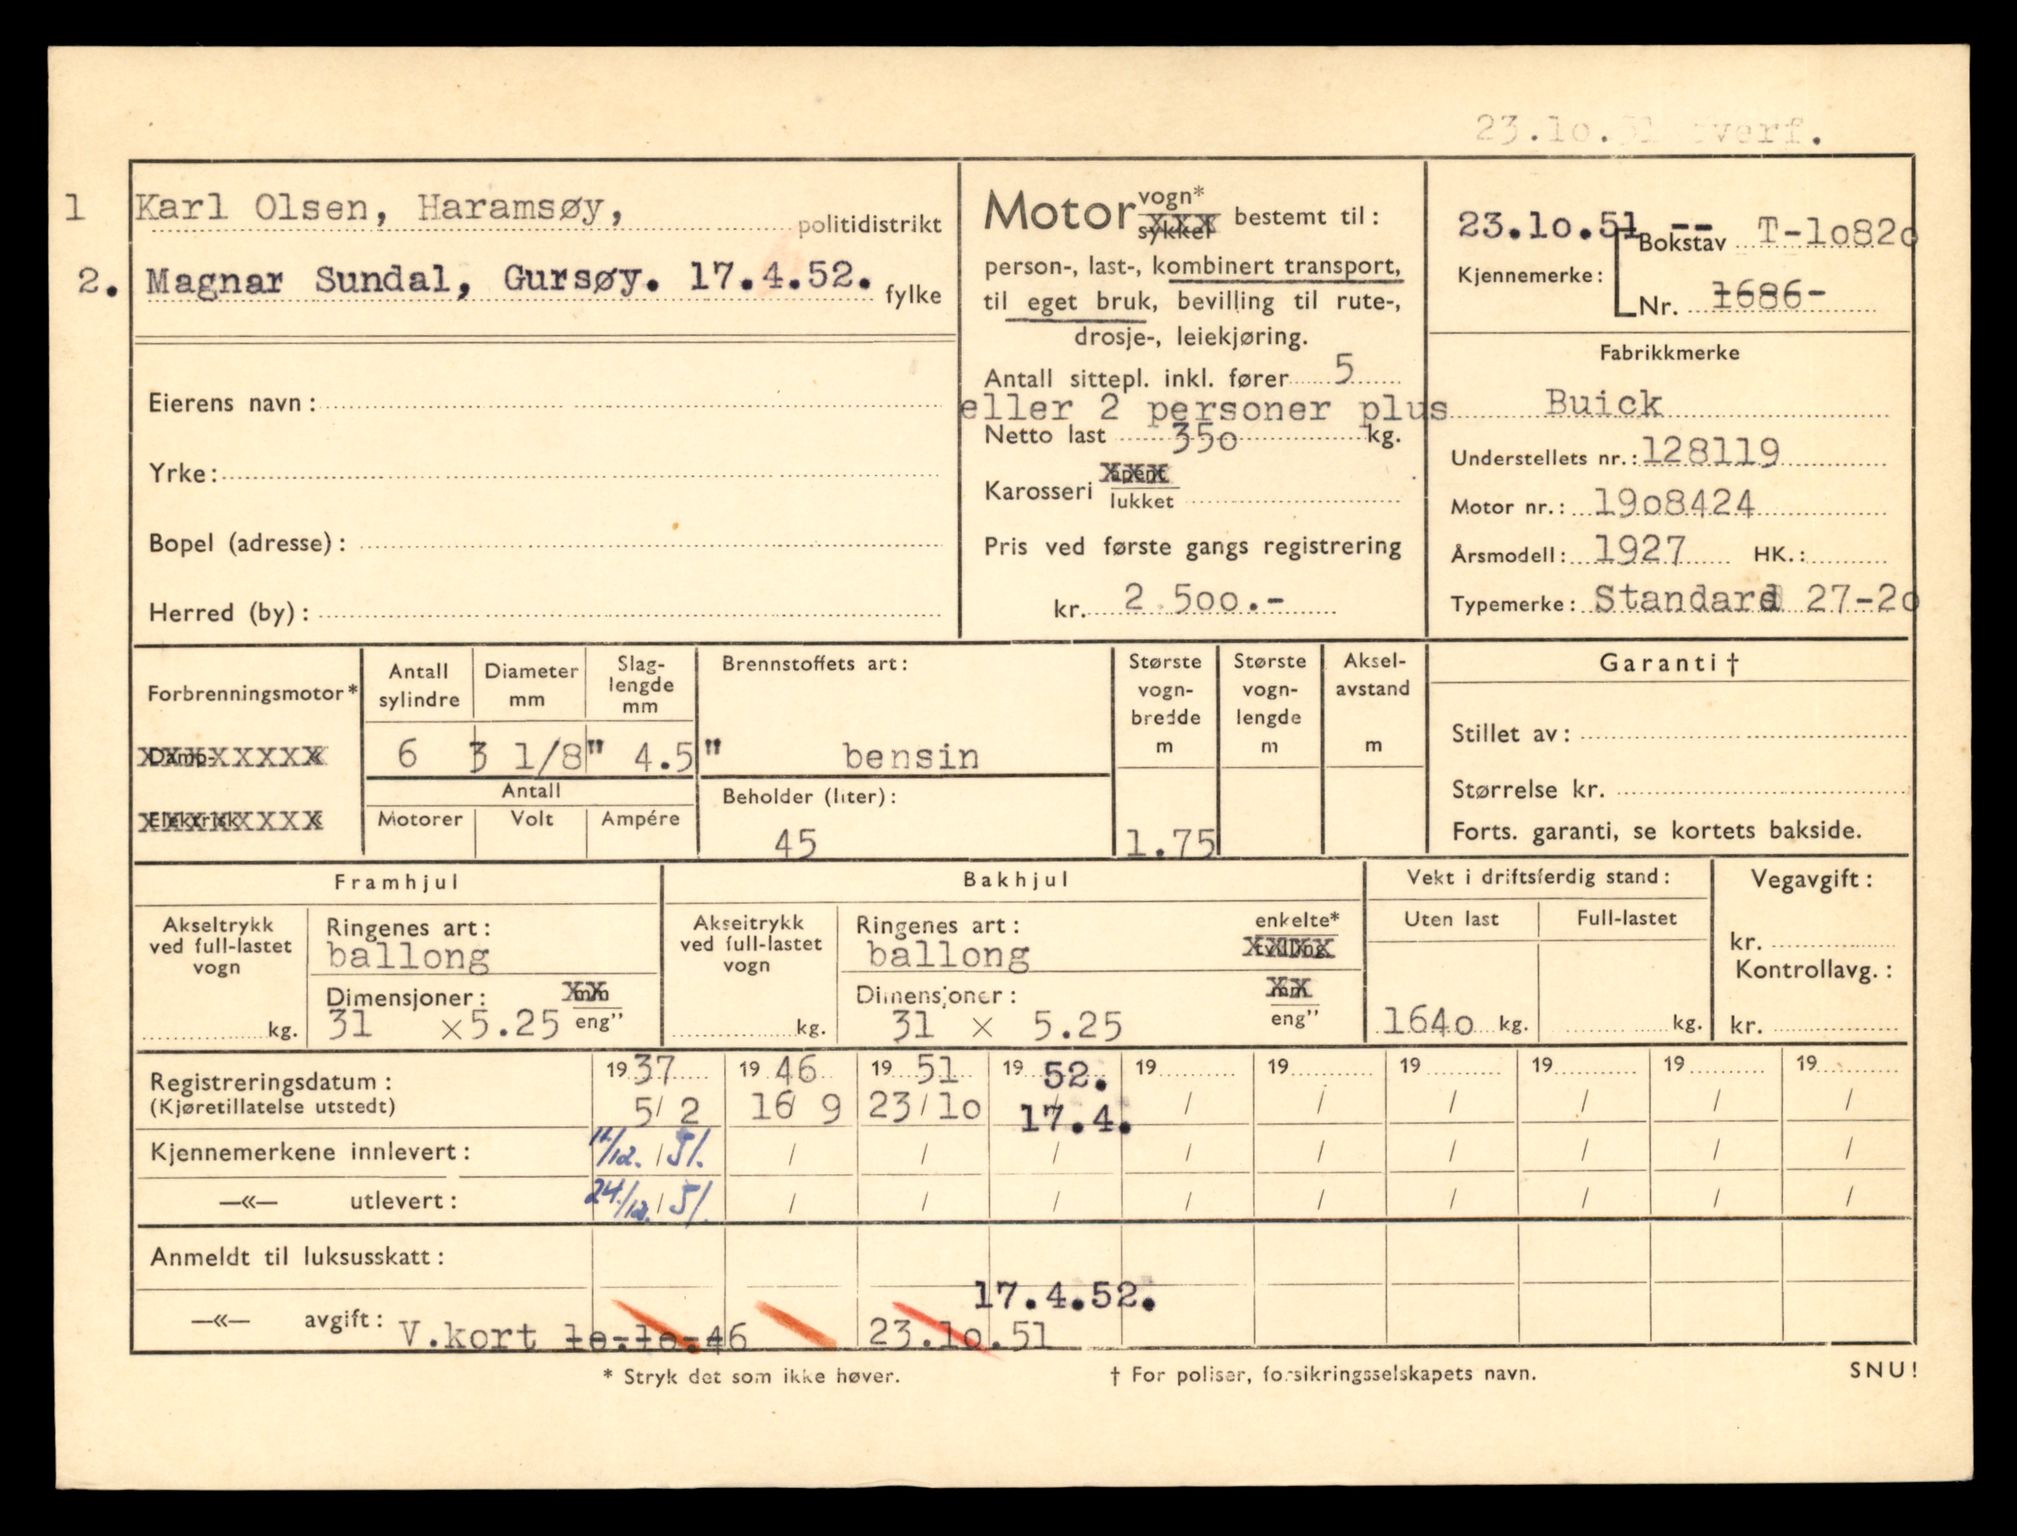 23.1o.51 overf.
1 Karl Olsen, Haramsøy, politidistrikt
2. Magnar Sundal, Gursøy. 17.4.52. fylke
Eierens navn:
Yrke:
Bopel (adresse):
Herred (by):
Motor vogn*
sykkel bestemt til:
person-, last-, kombinert transport,
til eget bruk, bevilling til rute-,
drosje-, leiekjøring.
Antall sittepl. inkl. fører 5
eller 2 personer plus
Netto last 35o kg.
Karosseri åpent
lukket
Pris ved første gangs registrering
kr. 2 5oo.-
23.1o.51 -- Bokstav T-1o82o
Kjennemerke:
Nr. 1686-
Fabrikkmerke
Buick
Understellets nr.: 128119
Motor nr.: 19o8424
Årsmodell: 1927 HK.:
Typemerke: Standard 27-2o
Forbrenningsmotor*
Damp-
Elektrisk
Antall sylindre
Diameter mm
Slag-
lengde
mm
6 3 1/8" 4.5"
Antall
Motorer Volt Ampére
Brennstoffets art:
bensin
Beholder (liter):
45
Største
vogn-
bredde
m
1.75
Største
vogn-
lengde
m
Aksel-
avstand
m
Garanti†
Stillet av:
Størrelse kr.
Forts. garanti, se kortets bakside.
Framhjul
Akseltrykk
ved full-lastet
vogn
kg.
Ringenes art:
ballong
Dimensjoner: mm
31 × 5.25 eng"
Bakhjul
Akseltrykk
ved full-lastet
vogn
kg.
Ringenes art: enkelte*
ballong tvilling
Dimensjoner: mm
31 × 5.25 eng"
Vekt i driftsferdig stand:
Uten last Full-lastet
164o kg. kg.
Vegavgift:
kr.
Kontrollavg.:
kr.
Registreringsdatum: 1937 1946 1951 1952. 19 19 19 19 19 19
(Kjøretillatelse utstedt) 5/ 2 16/ 9 23/1o 17.4. / / / / / /
Kjennemerkene innlevert: 11/12. / 51. / / / / / / / / /
—«— utlevert: 24/12. / 51. / / / / / / / / /
Anmeldt til luksusskatt:
17.4.52.
—«— avgift: V.kort 1o.1o.46 23.1o.51
* Stryk det som ikke høver. † For poliser, forsikringsselskapets navn. SNU!